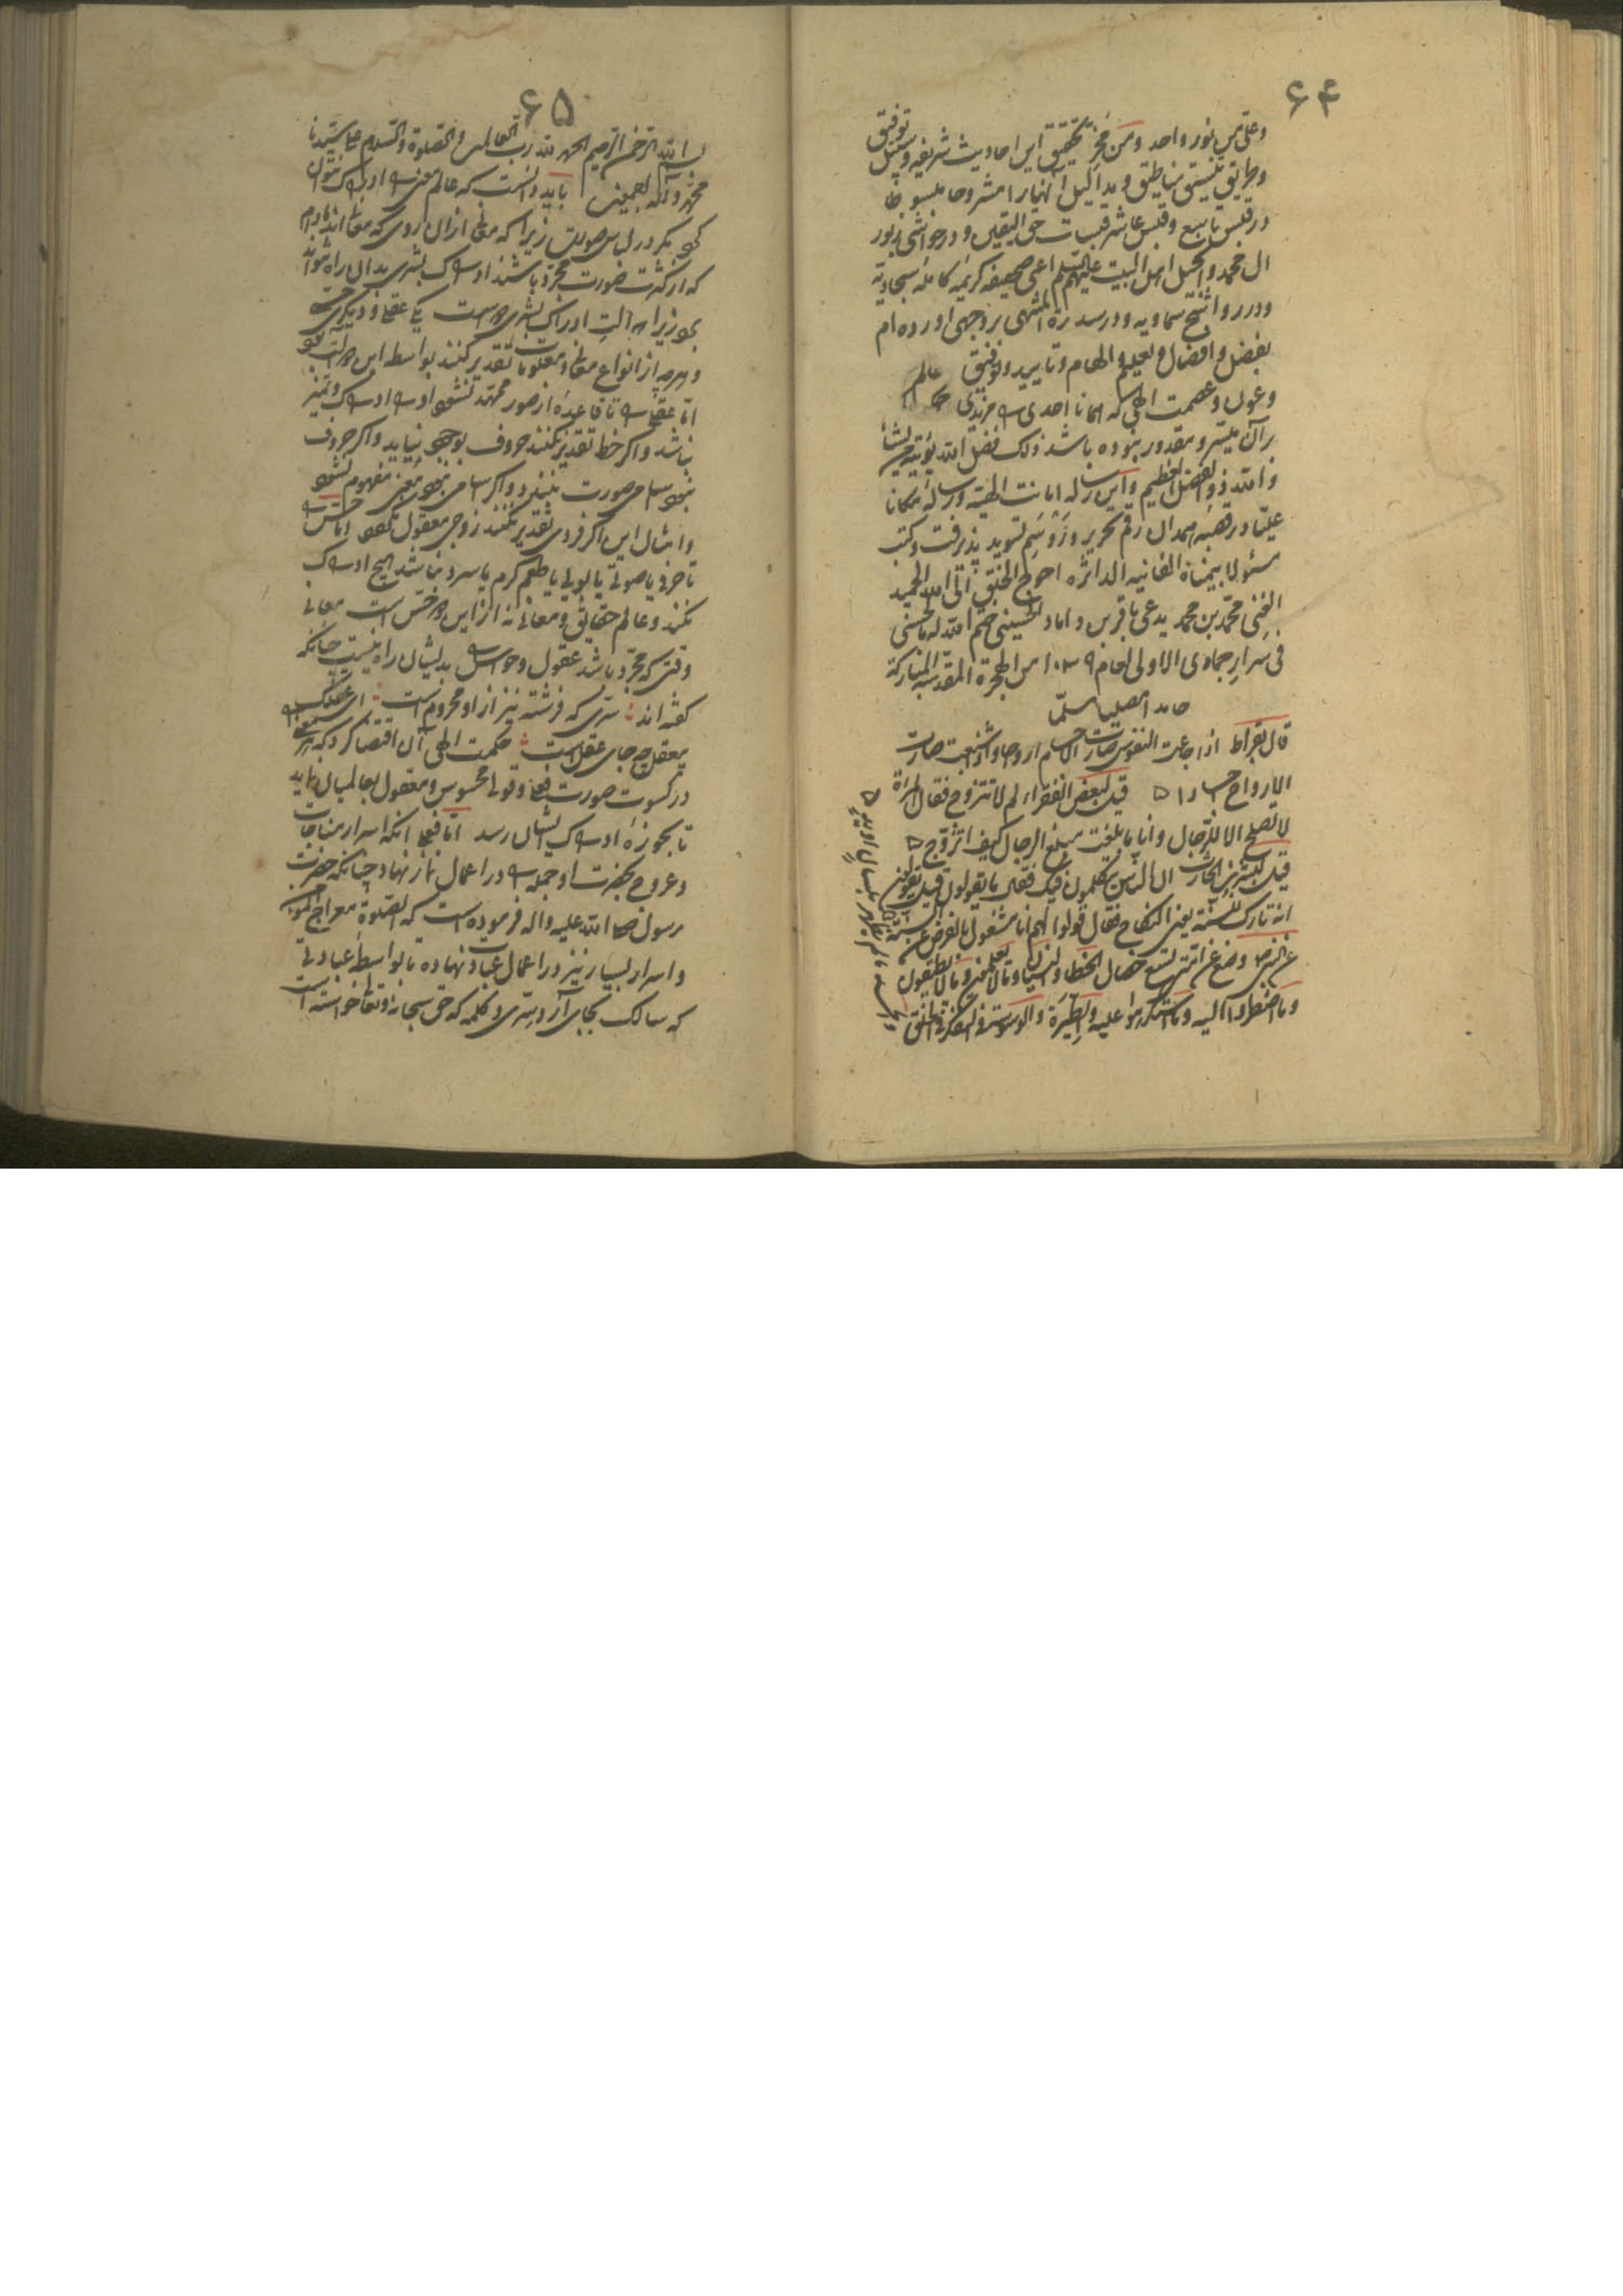 ۶۴
وعلی من نور واحد ومن تحقیق این احادیث شریفه وسبیل توفیق
وطریق تنسیق وتطبیق وبدا کیل انهار را مشروحا مبسوطا
در قبس تاسع وقبس عاشر قبسات حق الیقین ودر حواشی زبور
ال محمد وانجیل اهل البیت علیهم السلم اعنی صحیفه کریمه کامله سجادیه
ودر رواشح سماویه ودر سدرة المنتهی بر وجهی اورده ام
بفضل وافضال وتعلیم والهام وتایید وتوفیق
وعون وعصمت الهی که همانا احدی
بر آن میسر ومقدور نبوده باشد ذلک فضل الله یؤتیه من یشاء
والله ذو الفضل العظیم واین رساله امانت الهیه ورساله مکانا
علیا در قصبه همدان رقم تحریر ورسم تسوید پذیرفت وکتب
مسئولا بیمناه الفانیه الداثره احوج الخلق الی الله الحمید
الغنی محمد بن محمد یدعی باقر بن داماد الحسینی ختم الله له بالحسنی
فی سرار جمادی الاولی لعام ۱۰۳۹ من الهجرة المقدسه المبارکة
حامدا مصلیا مسلما
قال بقراط اذا جاعت النفوس صارت الاجسام ارواحا واذا شبعت صارت
الارواح اجسادا قیل لبعض الفقراء لم لا تتزوج فقال المرأة
لا تصلح الا للرجال وانا ما بلغت مبلغ الرجال کیف اتزوج
قیل لبشر بن الحارث ان الناس یتکلمون فیک فقال ما یقولون قیل یقولون
انه تارک للسنة یعنی النکاح فقال قولوا لهم انا مشغول بالفرض عن السنة
عن النبی ص وضع عن امتی تسع خصال الخطا والنسیان وما لا یعلمون وما لا یطیقون
وما اضطروا الیه وما استکرهوا علیه والطیرة والوسوسة فی التفکر فی الخلق
۶۵
بسم الله الرحمن الرحیم الحمد لله رب العالمین والصلوة والسلام علی سیدنا
محمد وآله اجمعین باید دانست که عالم معنی را ادراک نتوان
کرد مگر در لباس صورت زیرا که معانی از آن روی که معانی اند مادام
که از کثرت صورت مجرد باشند ادراک بشری بدان راه نتواند
برد زیرا که آلت ادراک بشری دو است یکی عقل و دیگری حس
و هر چه از انواع معانی و معلومات تقدیر کنند بواسطه این دو آلت بود
اما عقل را تا قاعدهٔ از صور ممهد نشود او را ادراک و تمیز
نباشد و اگر خط تقدیر نکنند حروف بوجود نیاید و اگر حروف
نبود اسامی صورت نبندد و اگر اسامی نبود معنی مفهوم نشود
و امثال این اگر فردی تقدیر نکنند زوجی معقول نگردد اما حس را
تا حرفی یا صوتی یا بویی یا طعم گرم یا سرد نباشد هیچ ادراک
نکند و عالم حقایق و معانی نه از این دو جنس است معانی
وقتی که مجرد باشد عقول و حواس را بدیشان راه نیست چنانکه
گفته اند سری که فرشته نیز از او محروم است ای عقلک
بی عقل چه جای عقلست حکمت الهی آن اقتضا کرد که
در کسوت صورت محسوس و معقول بعالمیان نماید
تا بحوزهٔ ادراک ایشان رسد اما فعلا آنکه اسرار مناجات
و عروج بحضرت او جمله را در اعمال نماز نهاد چنانکه حضرت
رسول صلی الله علیه واله فرموده است که الصلوة معراج المؤمن
و اسرار بسیار نیز در اعمال عبادت نهاده تا بواسطه عبادتی
که سالک بجای آرد سری و کلمه که حق سبحانه وتعالی خواسته است